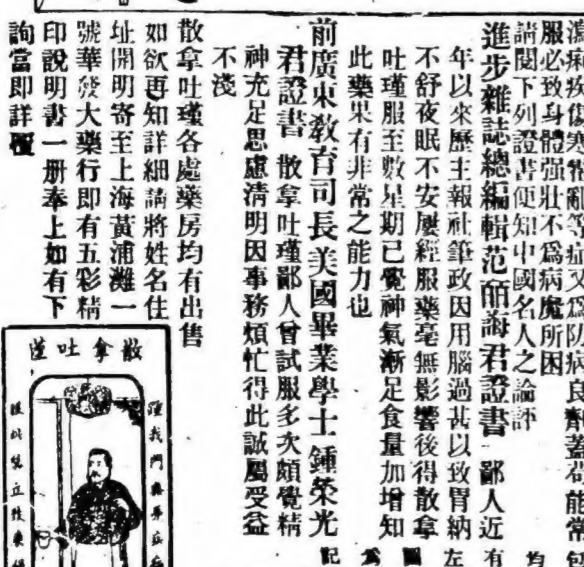 瀉痢疾傷寒霍亂等症又爲防病良劑蓋茍能常
服必致身體强壯不爲病魔所困
請閱下列證書便知中國名人之論評
進步雜誌總編輯范皕誨君證書　鄙人近
年以來歷主報社筆政因用腦過甚以致胃納
不舒夜眠不安屢經服藥毫無影響後得散拿
吐瑾服至數星期已覺神氣漸足食量加增知
此藥果有非常之能力也
前廣東教育司長美國畢業學士鍾榮光
君證書　散拿吐瑾鄙人曾試服多次頗覺精
神充足思慮清明因事務煩忙得此誠屬受益
不淺
散拿吐瑾各處藥房均有出售
如欲再知詳細請將姓名住
址開明寄至上海黃浦灘一
號華發大藥行即有五彩精
印說明書一册奉上如有下
詢當即詳覆
均
有
左
圖
爲
記
散拿吐瑾